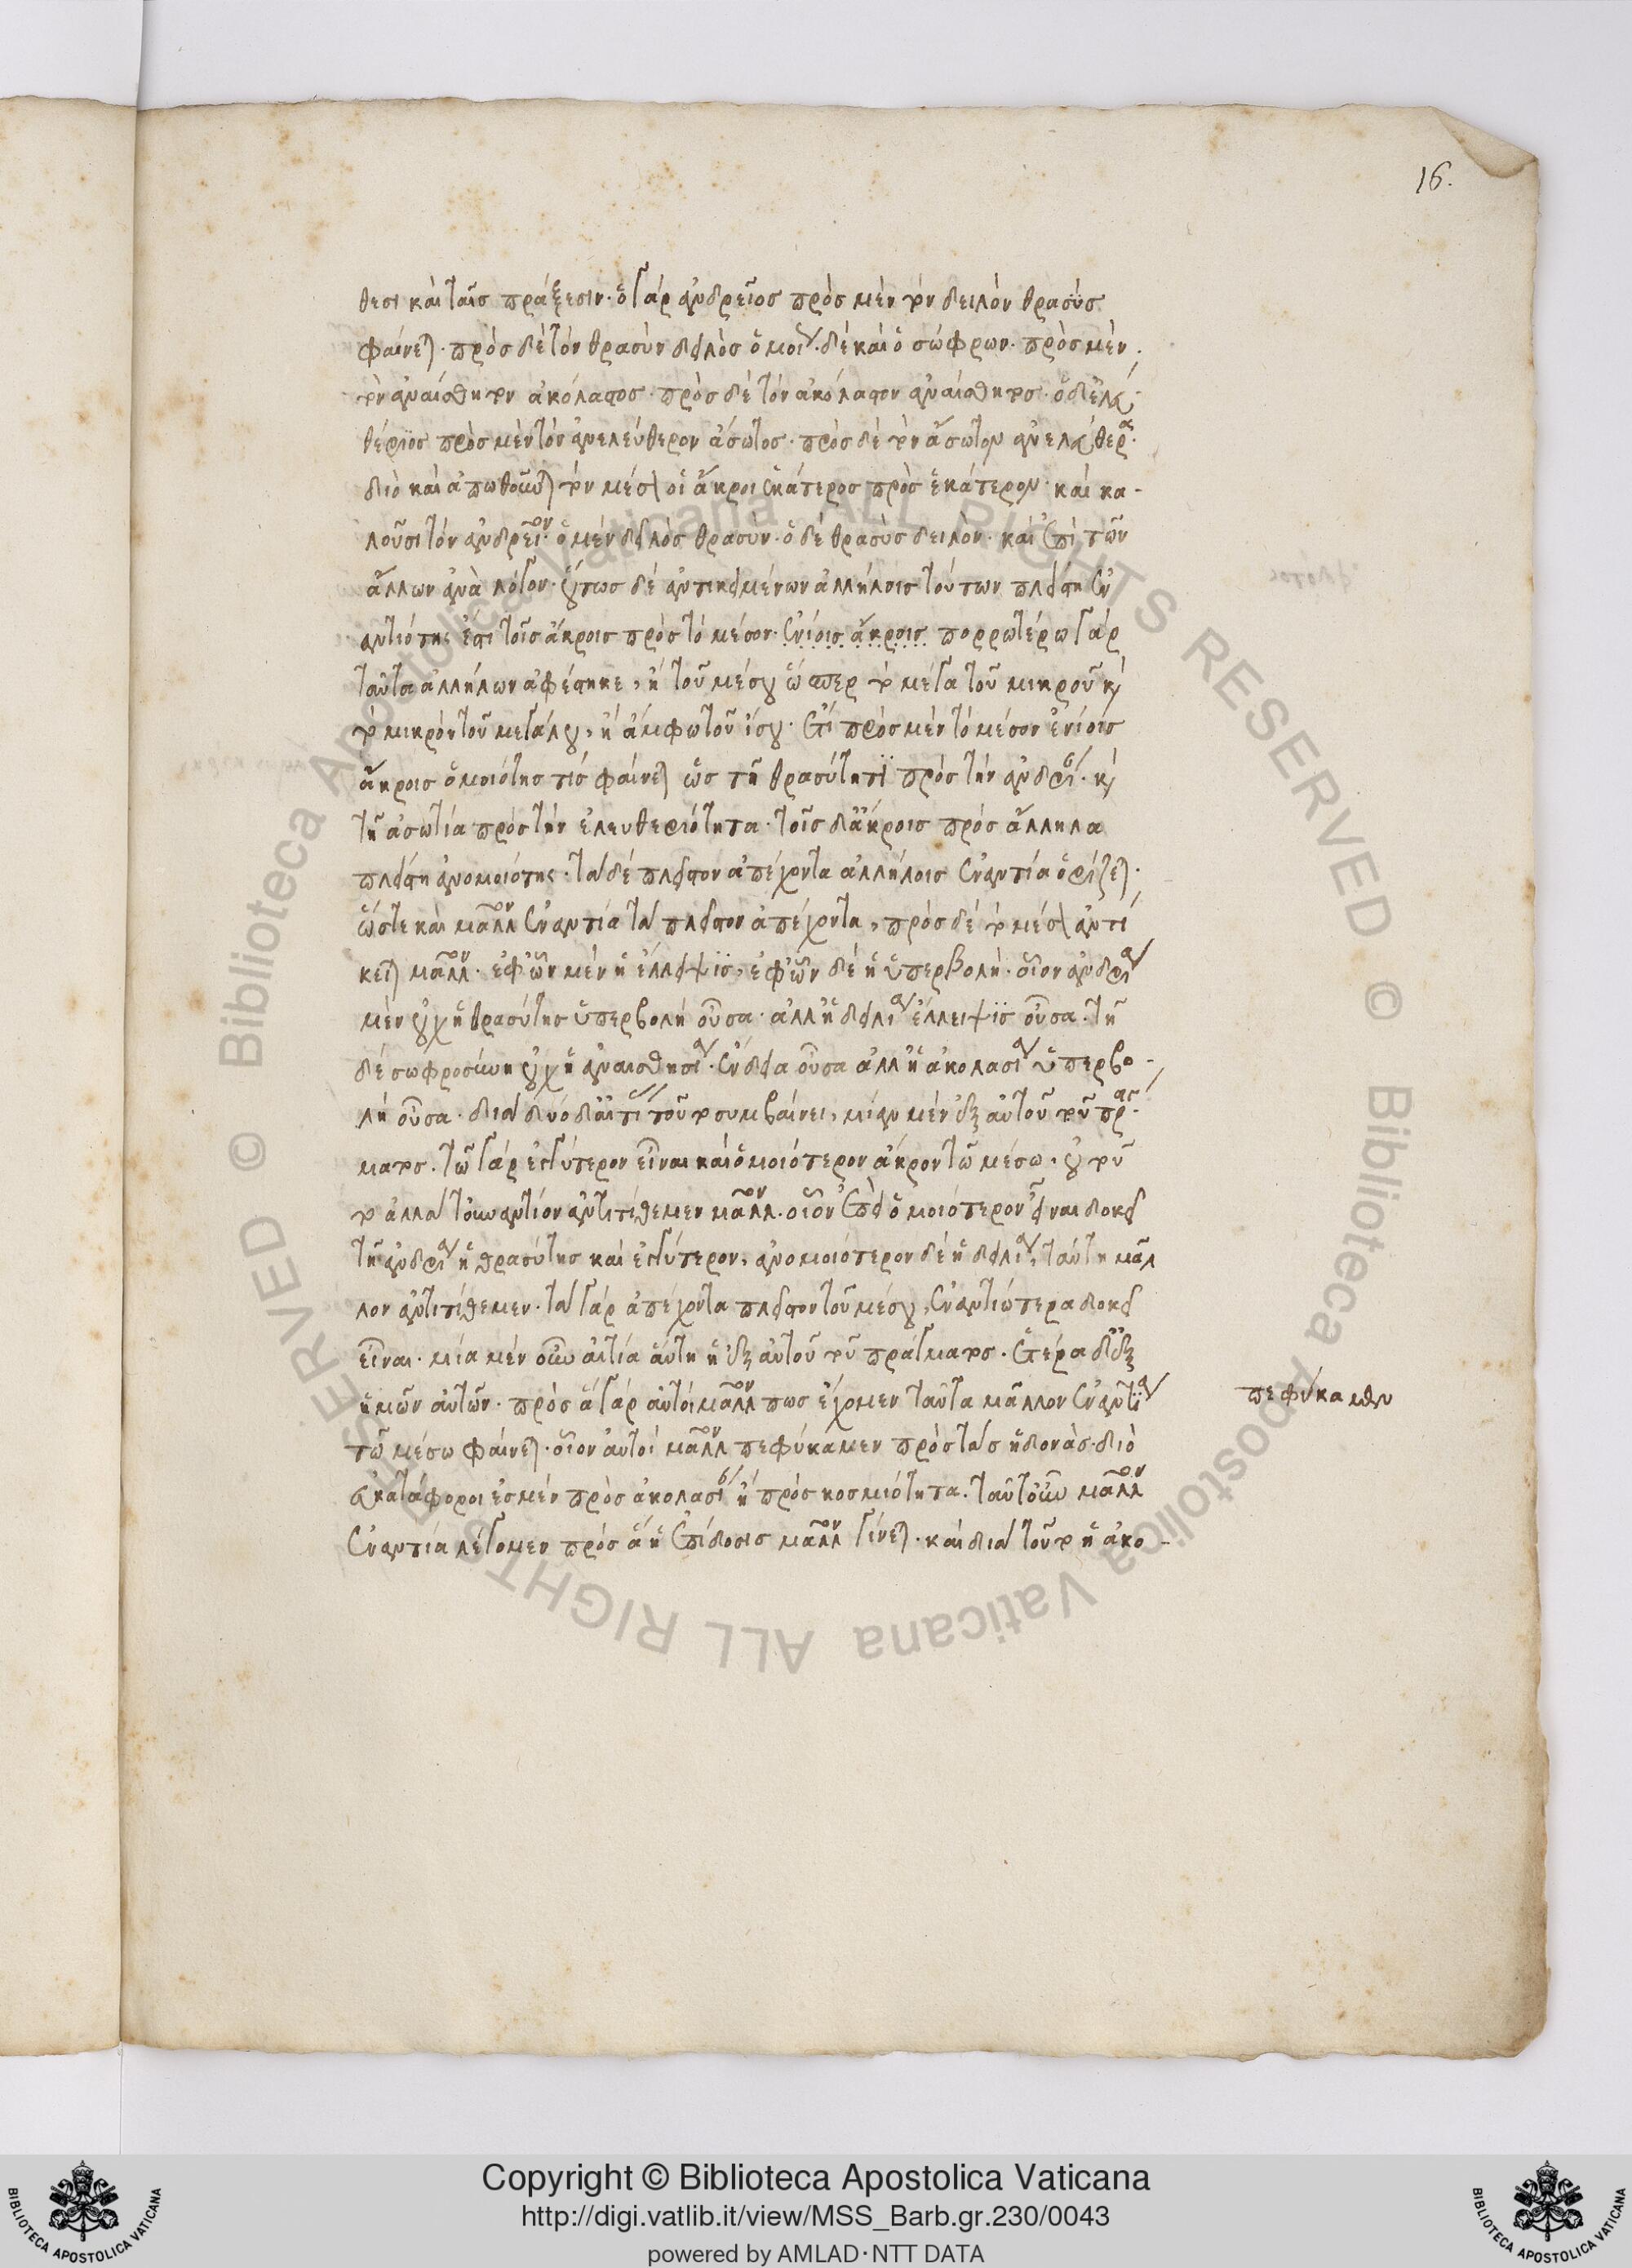 16.
θεσι καὶ ταῖς πράξεσιν· ὁ γὰρ ἀνδρεῖος πρὸς μὲν τὸν δειλὸν θρασὺς
φαίνεται· πρὸς δὲ τὸν θρασὺν δειλὸς ὁμοίως· δὲ καὶ ὁ σώφρων· πρὸς μὲν
τὸν ἀναίσθητον ἀκόλαστος· πρὸς δὲ τὸν ἀκόλαστον ἀναίσθητος· ὁ δ' ἐλευ
θέριος πρὸς μὲν τὸν ἀνελεύθερον ἄσωτος· πρὸς δὲ τὸν ἄσωτον ἀνελεύθερος·
διὸ καὶ ἀπωθοῦνται τὸν μέσον οἱ ἄκροι ἑκάτερος πρὸς ἑκάτερον· καὶ κα-
λοῦσι τὸν ἀνδρεῖον· ὁ μὲν δειλὸς θρασὺν· ὁ δὲ θρασὺς δειλὸν· καὶ ἐπὶ τῶν
ἄλλων ἀνὰ λόγον· οὕτως δὲ ἀντικειμένων ἀλλήλοις τούτων πλείστη ἐν
αντιότης ἐστὶ τοῖς ἄκροις πρὸς τὸ μέσον· ἐνίοις ἄκροις πορρωτέρω γὰρ
ταῦτα ἀλλήλων ἀφέστηκε, ἢ τοῦ μέσου ὥσπερ τὸ μέγα τοῦ μικροῦ καὶ
τὸ μικρὸν τοῦ μεγάλου, ἢ ἄμφω τοῦ ἴσου· ἔτι πρὸς μὲν τὸ μέσον ἐνίοις
ἄκροις ὁμοιότης τὶς φαίνεται ὡς τῇ θρασύτητι πρὸς τὴν ἀνδρείαν· καὶ
τῇ ἀσωτία πρὸς τὴν ἐλευθεριότητα· τοῖς δ' ἄκροις πρὸς ἄλληλα
πλείστη ἀνομοιότης· τὰ δὲ πλεῖστον ἀπέχοντα ἀλλήλοις ἐναντία ὁρίζεται·
ὥστε καὶ μᾶλλον ἐναντία τὰ πλεῖστον ἀπέχοντα, πρὸς δὲ τὸ μέσον ἀντί
κειται μᾶλλον· ἐφ' ὧν μὲν ἡ ἔλλειψις, ἐφ' ὧν δὲ ἡ ὑπερβολή· οἷον ἀνδρεία
μὲν οὐχ ἡ θρασύτης ὑπερβολὴ οὖσα· ἀλλ' ἡ δειλία ἔλλειψις οὖσα· τῇ
δὲ σωφροσύνη οὐχ ἡ ἀναισθησία· ἔνδεια οὖσα ἀλλ' ἡ ἀκολασία ὑπερβο-
λὴ οὖσα· διὰ δύο δ' αἰτίας τοῦτο συμβαίνει, μίαν μὲν ἐξ αὐτοῦ τοῦ πράγ
ματος· τῶ γὰρ ἐγγύτερον εἶναι καὶ ὁμοιότερον ἄκρον τῶ μέσω, οὐ τοῦ
το ἀλλὰ τοὐναντίον ἀντιτίθεμεν μᾶλλον· οἷον ἐπεὶ ὁμοιότερον εἶναι δοκεῖ
τῇ ἀνδρεία ἡ θρασύτης καὶ ἐγγύτερον, ἀνομοιότερον δὲ ἡ δειλία, ταύτη μᾶλ
λον ἀντιτίθεμεν· τὰ γὰρ ἀπέχοντα πλεῖστον τοῦ μέσου, ἐναντιώτερα δοκεῖ
εἶναι· μία μὲν οὖν αἰτία αὕτη ἡ ἐξ αὐτοῦ τοῦ πράγματος· ἑτέρα δ' ἐξ
ἡμῶν αὐτῶν· πρὸς ἃ γὰρ αὐτοὶ μᾶλλον πως ἔχομεν ταῦτα μᾶλλον ἐναντία
τῶ μέσω φαίνεται· οἷον αὐτοὶ μᾶλλον πεφύκαμεν πρὸς τὰς ἡδονάς· διὸ
πεφύκαμεν
εὐκατάφοροι ἐσμὲν πρὸς ἀκολασίαν ἢ πρὸς κοσμιότητα· ταῦτ' οὖν μᾶλλον
ἐναντία λέγομεν πρὸς ἃ ἡ ἐπίδοσις μᾶλλον γίνεται· καὶ διὰ τοῦτο ἡ ἀκο-
© Biblioteca Apostolica Vaticana ALL RIGHTS RESERVED © Biblioteca Apostolica Vaticana ALL RIGHTS RESERVED
BIBLIOTECA APOSTOLICA VATICANA
Copyright © Biblioteca Apostolica Vaticana
http://digi.vatlib.it/view/MSS_Barb.gr.230/0043
powered by AMLAD·NTT DATA
BIBLIOTECA APOSTOLICA VATICANA